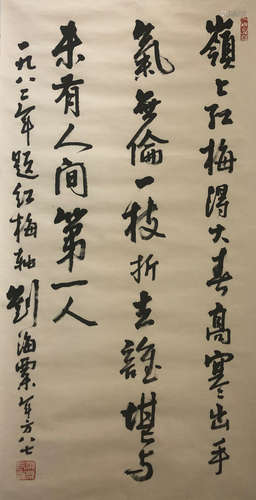 嶺上红梅得大春高寒出手
氣無倫一枝折去誰堪与
未有人间第一人
一九八二年题红梅轴劉海粟年方八七